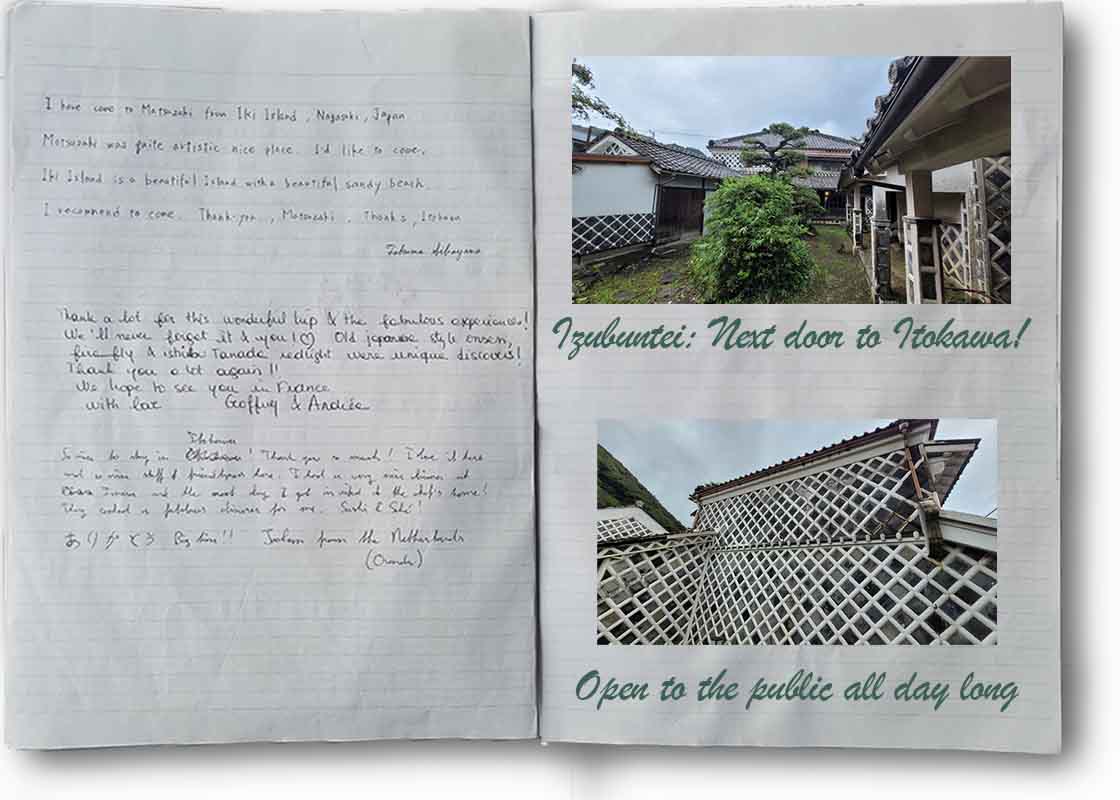 I have come to Matsuzaki from Iki Island, Nagasaki, Japan
Matsuzaki was quite artistic nice place. I'd like to come.
Iki Island is a beautiful Island with a beautiful sandy beach.
I recommend to come. Thank you, Matsuzaki, Thanks, Itokawa
Thank a lot for this wonderful trip & the fabulous experiences!
We'll never forget it & you! ♡ Old japanese style onsen,
fire-fly & ishibu Tanada redlight were unique discovers!
Thank you a lot again!!
We hope to see you in France
with love Geoffroy & Andréa
Itokawa
So nice to stay in ! Thank you so much! I love it here
and so nice staff & friendly here. I had a very nice dinner at
and the next day I got invited at the chef's home!
They cooked a fabulous dinner for me. !
ありがとう Big kiss!! from the Netherlands
Izubuntei: Next door to Itokawa!
Open to the public all day long